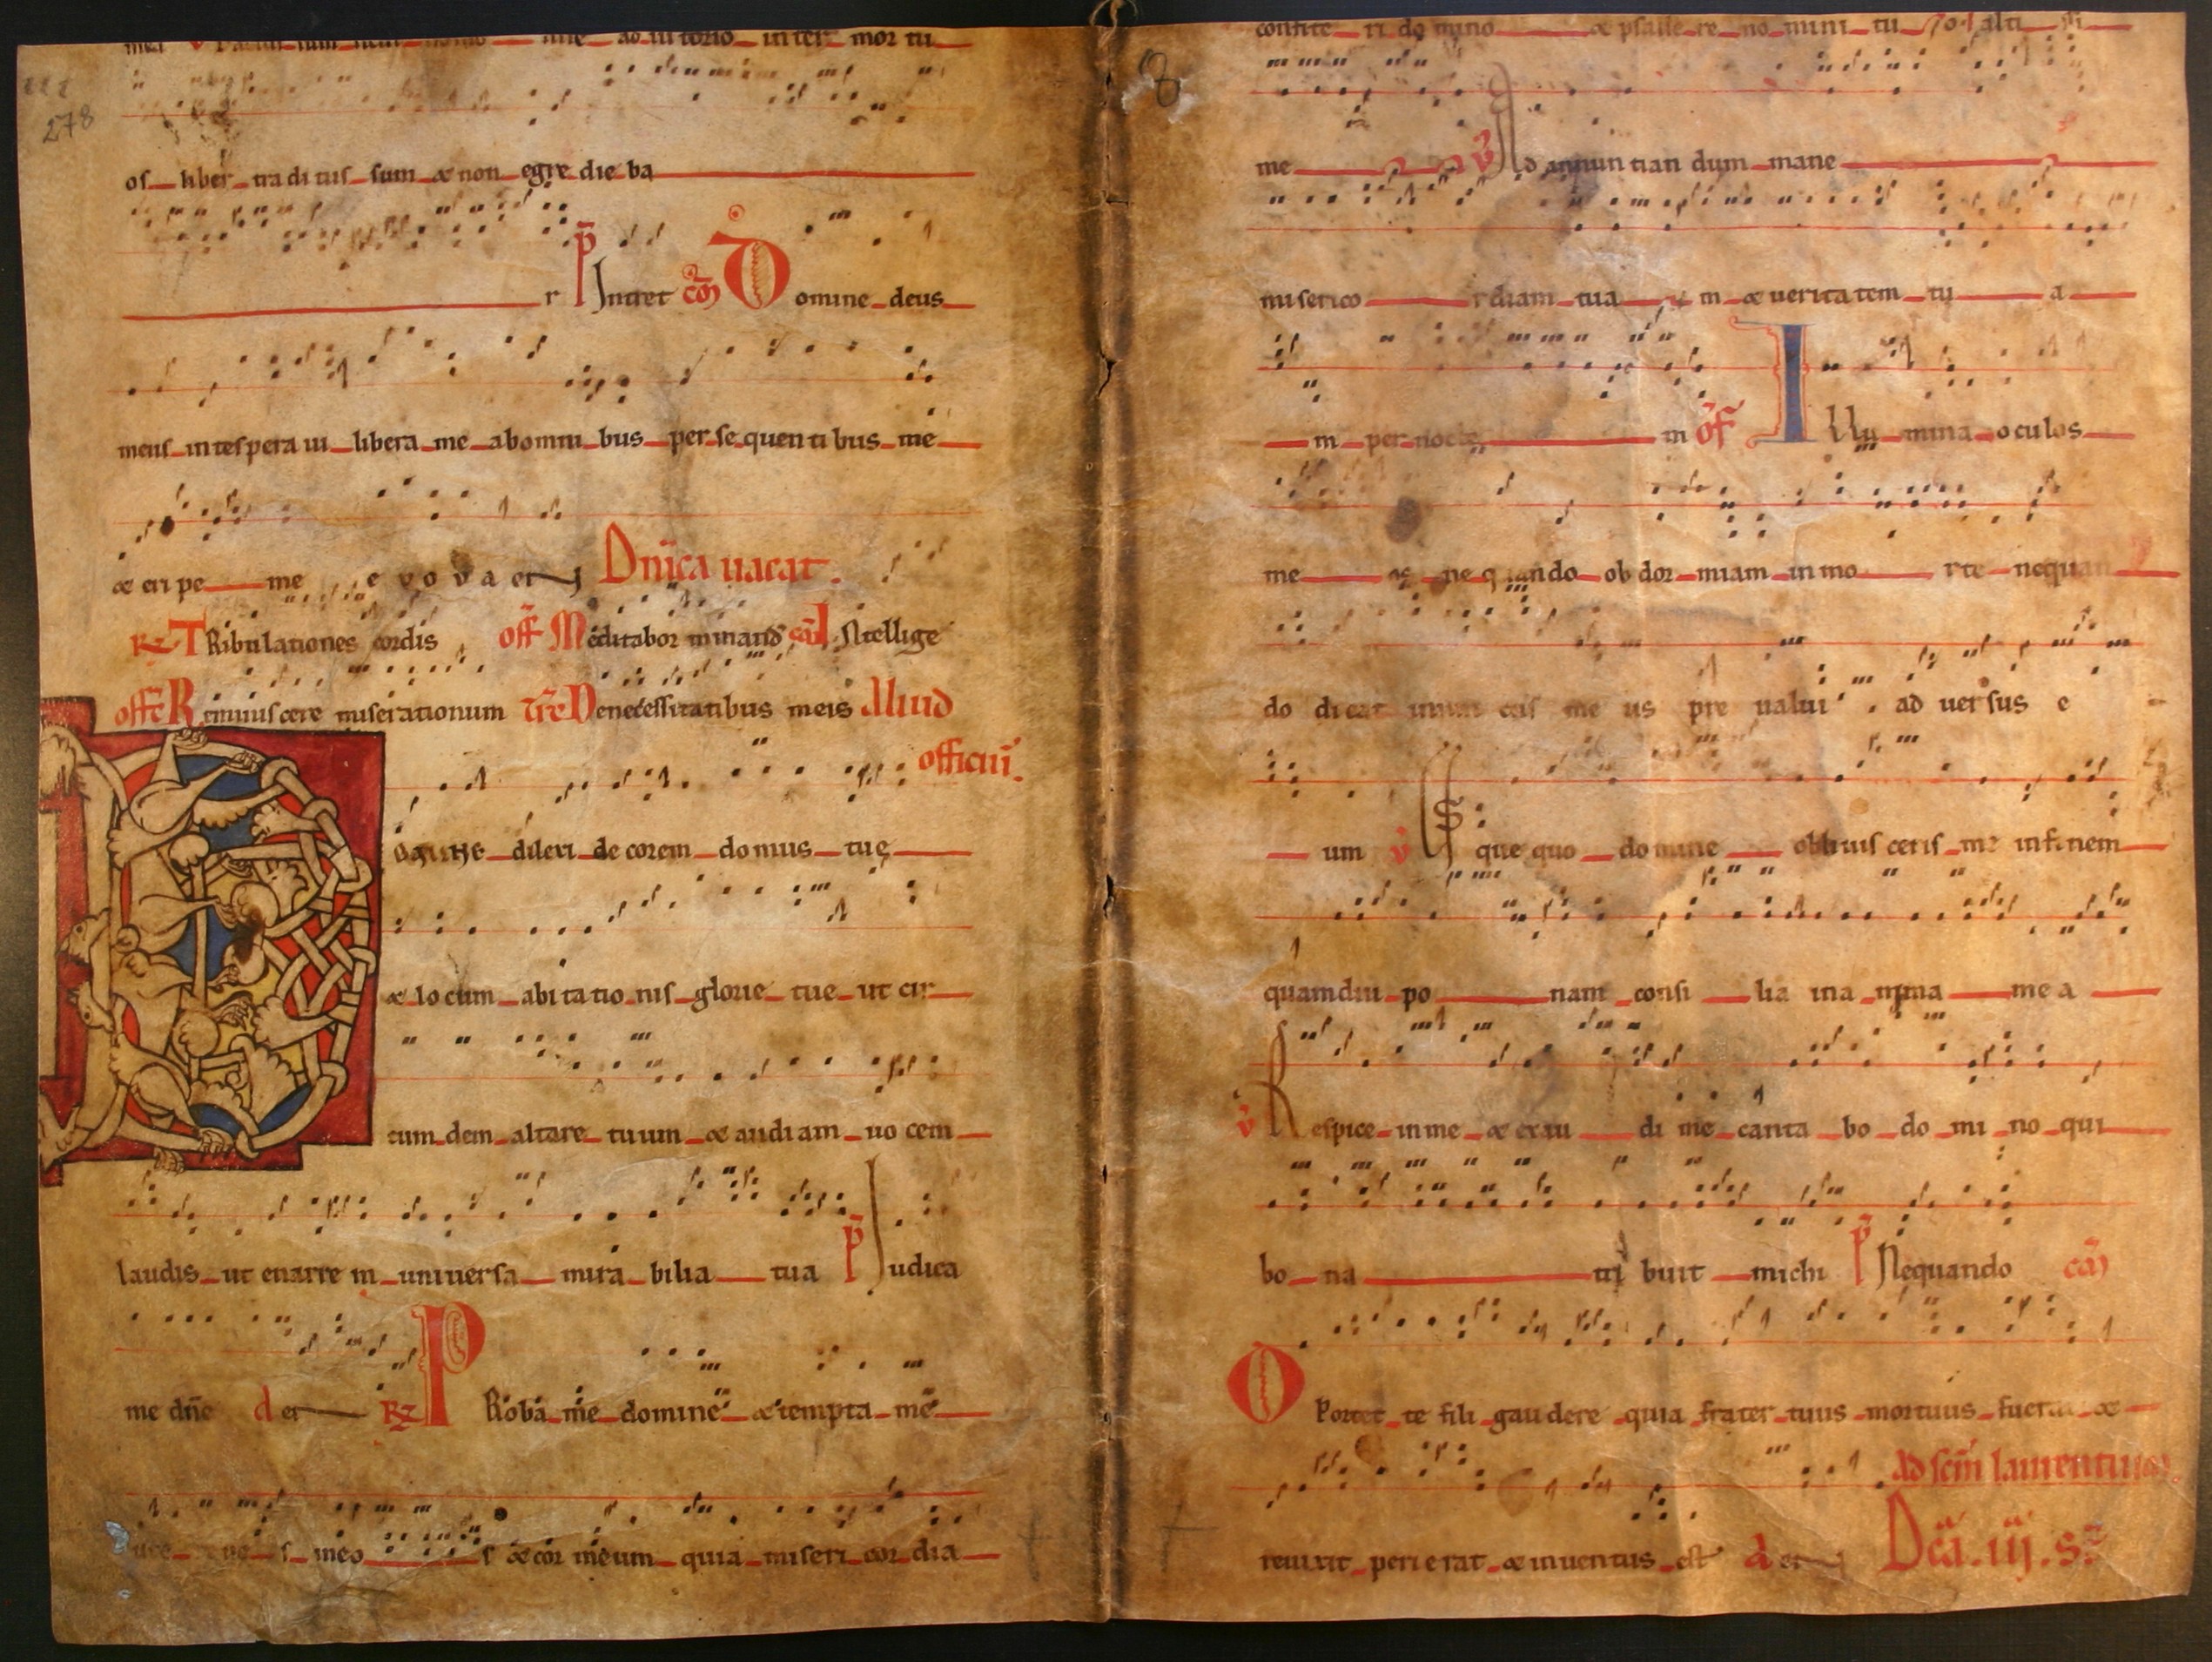 278
ad iutorio inter mor tu
os liber tra di tus sum & non egre die ba
r P Intret com D omine deus
meus in te spera ui libera me ab omni bus per se quen ti bus me
& eri pe me e v o v a e Dnica uacat.
R TRibulationes cordis off Meditabor in mand com INtellige
offe Reminiscere miserationum tre De necessitatibus meis Aliud
officiu.
Domine dilexi de corem domus tue
& lo cum abi ta tio nis glorie tue ut cir
cum dem altare tuum & audi am uo cem
laudis ut enarre m uniuersa mira bilia tua P Iudica
me dne d e R P Roba me domine & tempta me
ure re ne s meo s & cor meum quia miseri cor dia
8
confite ri do mino & psalle re no mini tu o alti ssi
me V Ad annun tian dum mane
miserico rdiam tua m & uerita tem tu a
m per nocte m of I llu mina oculos
me os ne quando ob dor miam in mo rte nequan
do dicat inimi cus me us pre ualui ad uer sus e
um V Us que quo domine obliuis ceris me in finem
quamdiu po nam consi lia in a nima me a
V Respice in me & exau di me canta bo do mi no qui
bo na tri buit michi P Nequando com
O Portet te fili gaudere quia frater tuus mortuus fuerat &
ad scm laurentium.
reuixit peri erat & inuentus est d e Dca.iij.